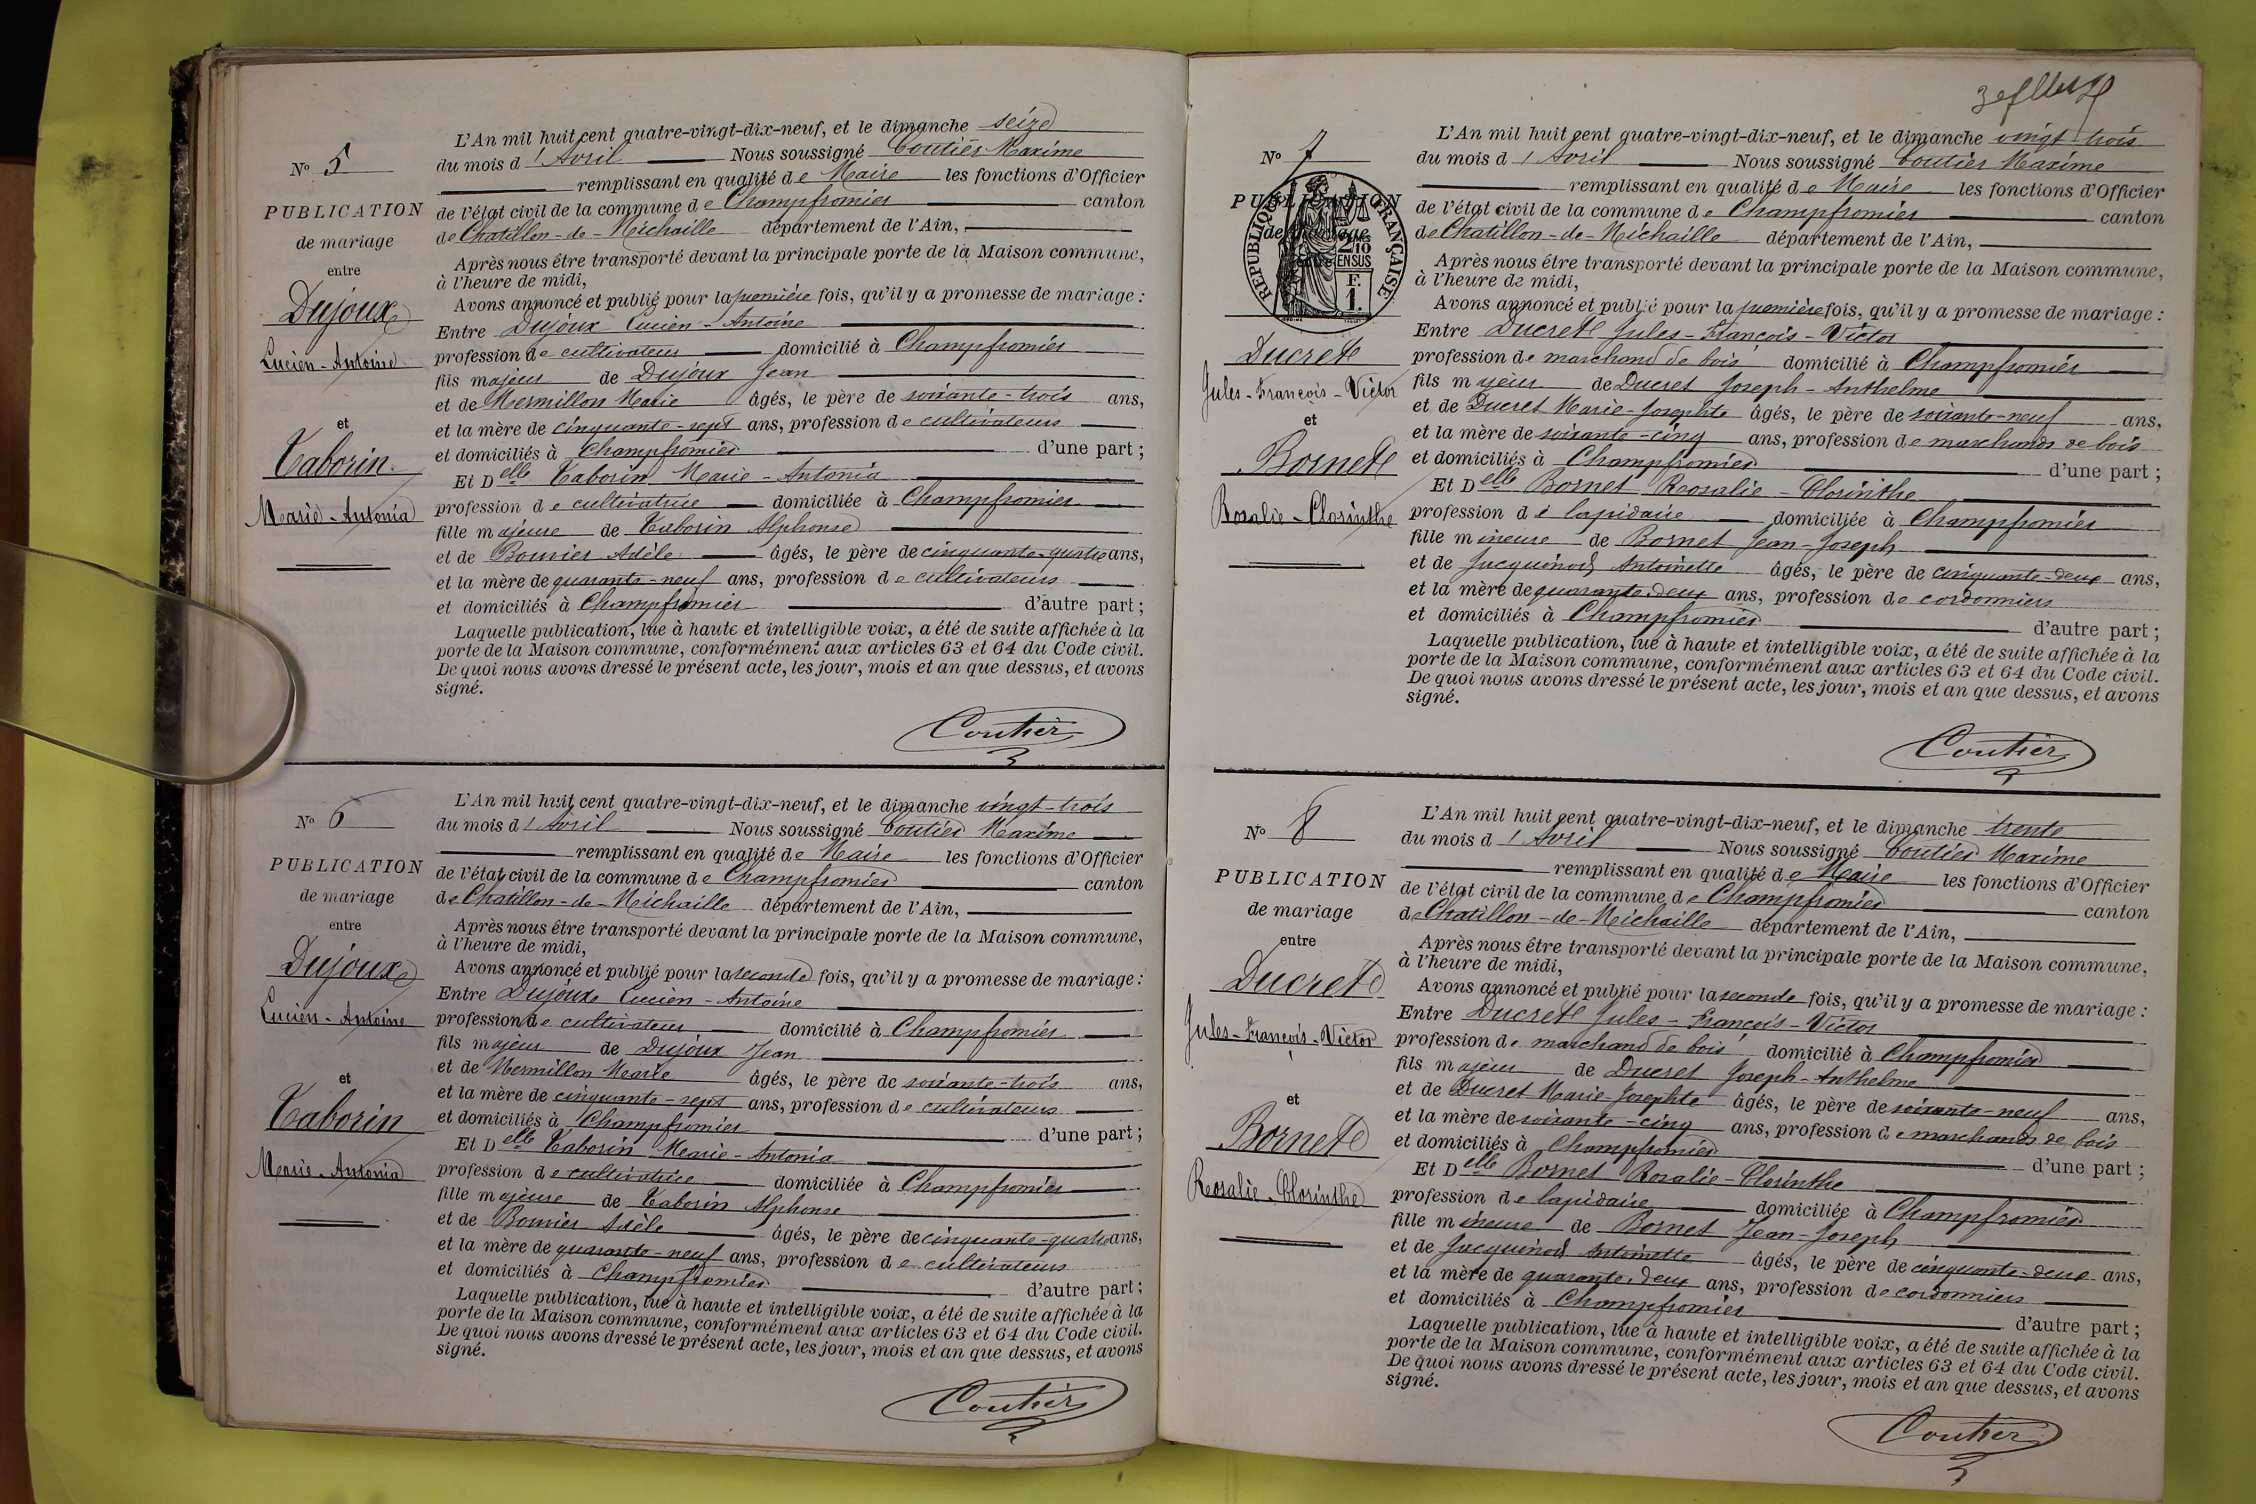 N° 5
PUBLICATION
de mariage
entre
Dujoux
Lucien-Antoine
et
Taborin
Marie-Antonia
L'An mil huit cent quatre-vingt-dix-neuf, et le dimanche seize
du mois d'Avril Nous soussigné Coutier Maxime
remplissant en qualité de Maire les fonctions d'Officier
de l'état civil de la commune de Champfromier canton
de Chatillon-de-Michaille département de l'Ain,
Après nous être transporté devant la principale porte de la Maison commune,
à l'heure de midi,
Avons annoncé et publié pour la première fois, qu'il y a promesse de mariage :
Entre Dujoux Lucien-Antoine
profession de cultivateur domicilié à Champfromier
fils majeur de Dujoux Jean
et de Mermillon Marie âgés, le père de soixante-trois ans,
et la mère de cinquante-sept ans, profession de cultivateurs
et domiciliés à Champfromier d'une part ;
Et Delle Taborin Marie-Antonia
profession de cultivatrice domiciliée à Champfromier
fille majeure de Taborin Alphonse
et de Bournier Adèle âgés, le père de cinquante-quatre ans,
et la mère de quarante-neuf ans, profession de cultivateurs
et domiciliés à Champfromier d'autre part ;
Laquelle publication, lue à haute et intelligible voix, a été de suite affichée à la
porte de la Maison commune, conformément aux articles 63 et 64 du Code civil.
De quoi nous avons dressé le présent acte, les jour, mois et an que dessus, et avons
signé.
Coutier
N° 6
PUBLICATION
de mariage
entre
Dujoux
Lucien-Antoine
et
Taborin
Marie-Antonia
L'An mil huit cent quatre-vingt-dix-neuf, et le dimanche vingt-trois
du mois d'Avril Nous soussigné Coutier Maxime
remplissant en qualité de Maire les fonctions d'Officier
de l'état civil de la commune de Champfromier canton
de Chatillon-de-Michaille département de l'Ain,
Après nous être transporté devant la principale porte de la Maison commune,
à l'heure de midi,
Avons annoncé et publié pour la seconde fois, qu'il y a promesse de mariage :
Entre Dujoux Lucien-Antoine
profession de cultivateur domicilié à Champfromier
fils majeur de Dujoux Jean
et de Mermillon Marie âgés, le père de soixante-trois ans,
et la mère de cinquante-sept ans, profession de cultivateurs
et domiciliés à Champfromier d'une part ;
Et Delle Taborin Marie-Antonia
profession de cultivatrice domiciliée à Champfromier
fille majeure de Taborin Alphonse
et de Bournier Adèle âgés, le père de cinquante-quatre ans,
et la mère de quarante-neuf ans, profession de cultivateurs
et domiciliés à Champfromier d'autre part ;
Laquelle publication, lue à haute et intelligible voix, a été de suite affichée à la
porte de la Maison commune, conformément aux articles 63 et 64 du Code civil.
De quoi nous avons dressé le présent acte, les jour, mois et an que dessus, et avons
signé.
Coutier
N° 7
PUBLICATION
de mariage
RÉPUBLIQUE FRANÇAISE
2/10
EN SUS
F.
1.
Ducret
Jules-François-Victor
et
Bornet
Rosalie-Clorinthe
L'An mil huit cent quatre-vingt-dix-neuf, et le dimanche vingt-trois
du mois d'Avril Nous soussigné Coutier Maxime
remplissant en qualité de Maire les fonctions d'Officier
de l'état civil de la commune de Champfromier canton
de Chatillon-de-Michaille département de l'Ain,
Après nous être transporté devant la principale porte de la Maison commune,
à l'heure de midi,
Avons annoncé et publié pour la première fois, qu'il y a promesse de mariage :
Entre Ducret Jules-François-Victor
profession de marchand de bois domicilié à Champfromier
fils majeur de Ducret Joseph-Anthelme
et de Ducret Marie-Josephte âgés, le père de soixante-neuf ans,
et la mère de soixante-cinq ans, profession de marchands de bois
et domiciliés à Champfromier d'une part ;
Et Delle Bornet Rosalie-Clorinthe
profession de lapidaire domiciliée à Champfromier
fille mineure de Bornet Jean-Joseph
et de Jacquinod Antoinette âgés, le père de cinquante-deux ans,
et la mère de quarante-deux ans, profession de cordonniers
et domiciliés à Champfromier d'autre part ;
Laquelle publication, lue à haute et intelligible voix, a été de suite affichée à la
porte de la Maison commune, conformément aux articles 63 et 64 du Code civil.
De quoi nous avons dressé le présent acte, les jour, mois et an que dessus, et avons
signé.
Coutier
N° 8
PUBLICATION
de mariage
entre
Ducret
Jules-François-Victor
et
Bornet
Rosalie-Clorinthe
L'An mil huit cent quatre-vingt-dix-neuf, et le dimanche trente
du mois d'Avril Nous soussigné Coutier Maxime
remplissant en qualité de Maire les fonctions d'Officier
de l'état civil de la commune de Champfromier canton
de Chatillon-de-Michaille département de l'Ain,
Après nous être transporté devant la principale porte de la Maison commune,
à l'heure de midi,
Avons annoncé et publié pour la seconde fois, qu'il y a promesse de mariage :
Entre Ducret Jules-François-Victor
profession de marchand de bois domicilié à Champfromier
fils majeur de Ducret Joseph-Anthelme
et de Ducret Marie-Josephte âgés, le père de soixante-neuf ans,
et la mère de soixante-cinq ans, profession de marchands de bois
et domiciliés à Champfromier d'une part ;
Et Delle Bornet Rosalie-Clorinthe
profession de lapidaire domiciliée à Champfromier
fille mineure de Bornet Jean-Joseph
et de Jacquinod Antoinette âgés, le père de cinquante-deux ans,
et la mère de quarante-deux ans, profession de cordonniers
et domiciliés à Champfromier d'autre part ;
Laquelle publication, lue à haute et intelligible voix, a été de suite affichée à la
porte de la Maison commune, conformément aux articles 63 et 64 du Code civil.
De quoi nous avons dressé le présent acte, les jour, mois et an que dessus, et avons
signé.
Coutier